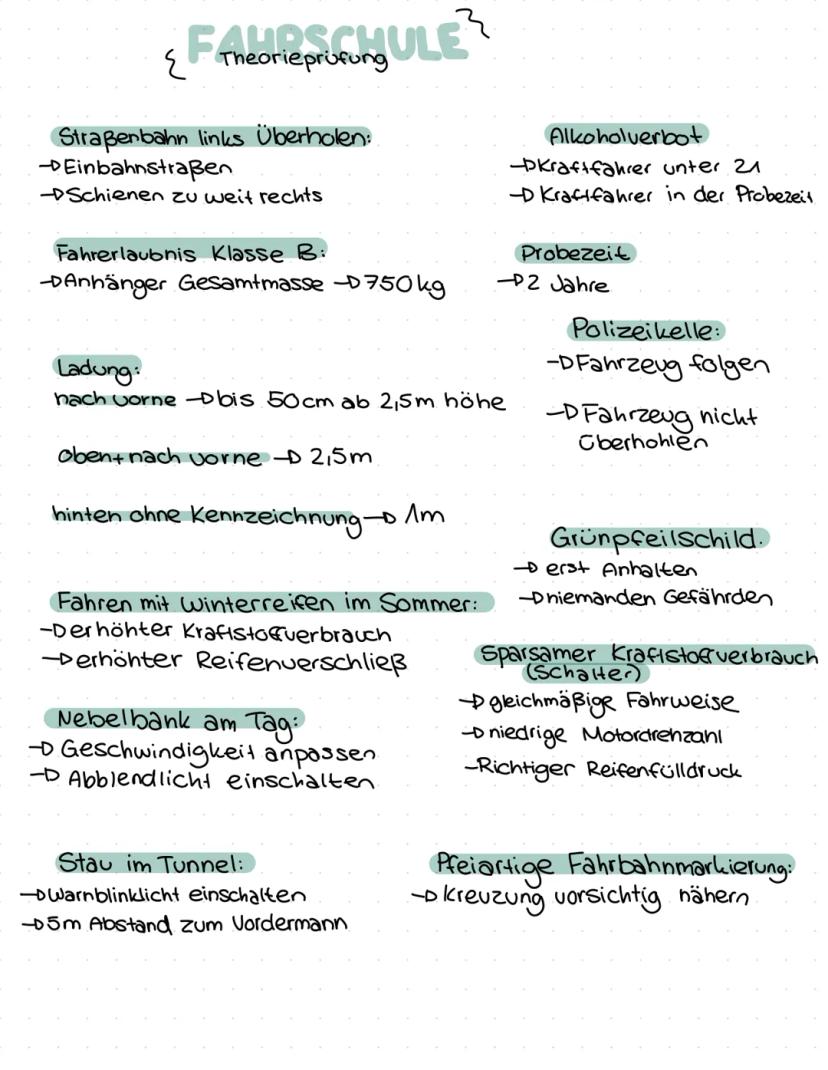 FAHRSCHULE
{ Theorieprüfung }
Straßenbahn links Überholen:
→ Einbahnstraßen
→ Schienen zu weit rechts
Fahrerlaubnis Klasse B:
→ Anhänger Gesamtmasse → 750 kg
Ladung:
nach vorne → bis 50cm ab 2,5m höhe
oben + nach vorne → 2,5m
hinten ohne Kennzeichnung → 1m
Fahren mit Winterreifen im Sommer:
→ erhöhter Kraftstoffverbrauch
→ erhöhter Reifenverschließ
Nebelbank am Tag:
→ Geschwindigkeit anpassen
→ Abblendlicht einschalten
Stau im Tunnel:
→ Warnblinklicht einschalten
→ 5m Abstand zum Vordermann
Alkoholverbot
→ Kraftfahrer unter 21
→ Kraftfahrer in der Probezeit
Probezeit
→ 2 Jahre
Polizeikelle:
→ Fahrzeug folgen
→ Fahrzeug nicht
überhohlen
Grünpfeilschild.
→ erst Anhalten
→ niemanden Gefährden
Sparsamer Kraftstoffverbrauch
(Schalter)
→ gleichmäßige Fahrweise
→ niedrige Motordrehzahl
- Richtiger Reifenfülldruck
Pfeiartige Fahrbahnmarkierung:
→ Kreuzung vorsichtig nähern